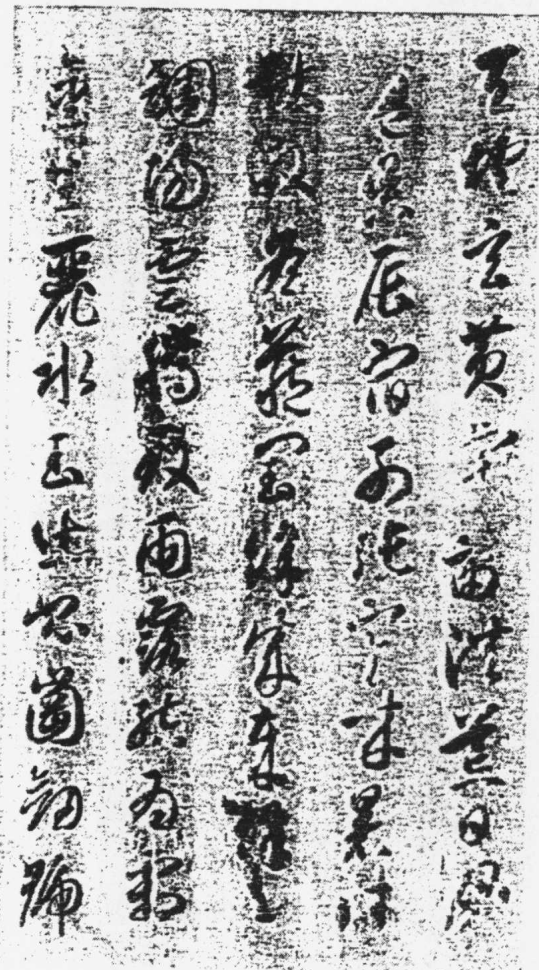 天地玄黃宇宙洪荒日月
盈昃辰宿列張寒來暑往
秋收冬藏閏餘成歲律呂
調陽雲騰致雨露結為霜
金生麗水玉出崑崗劍號